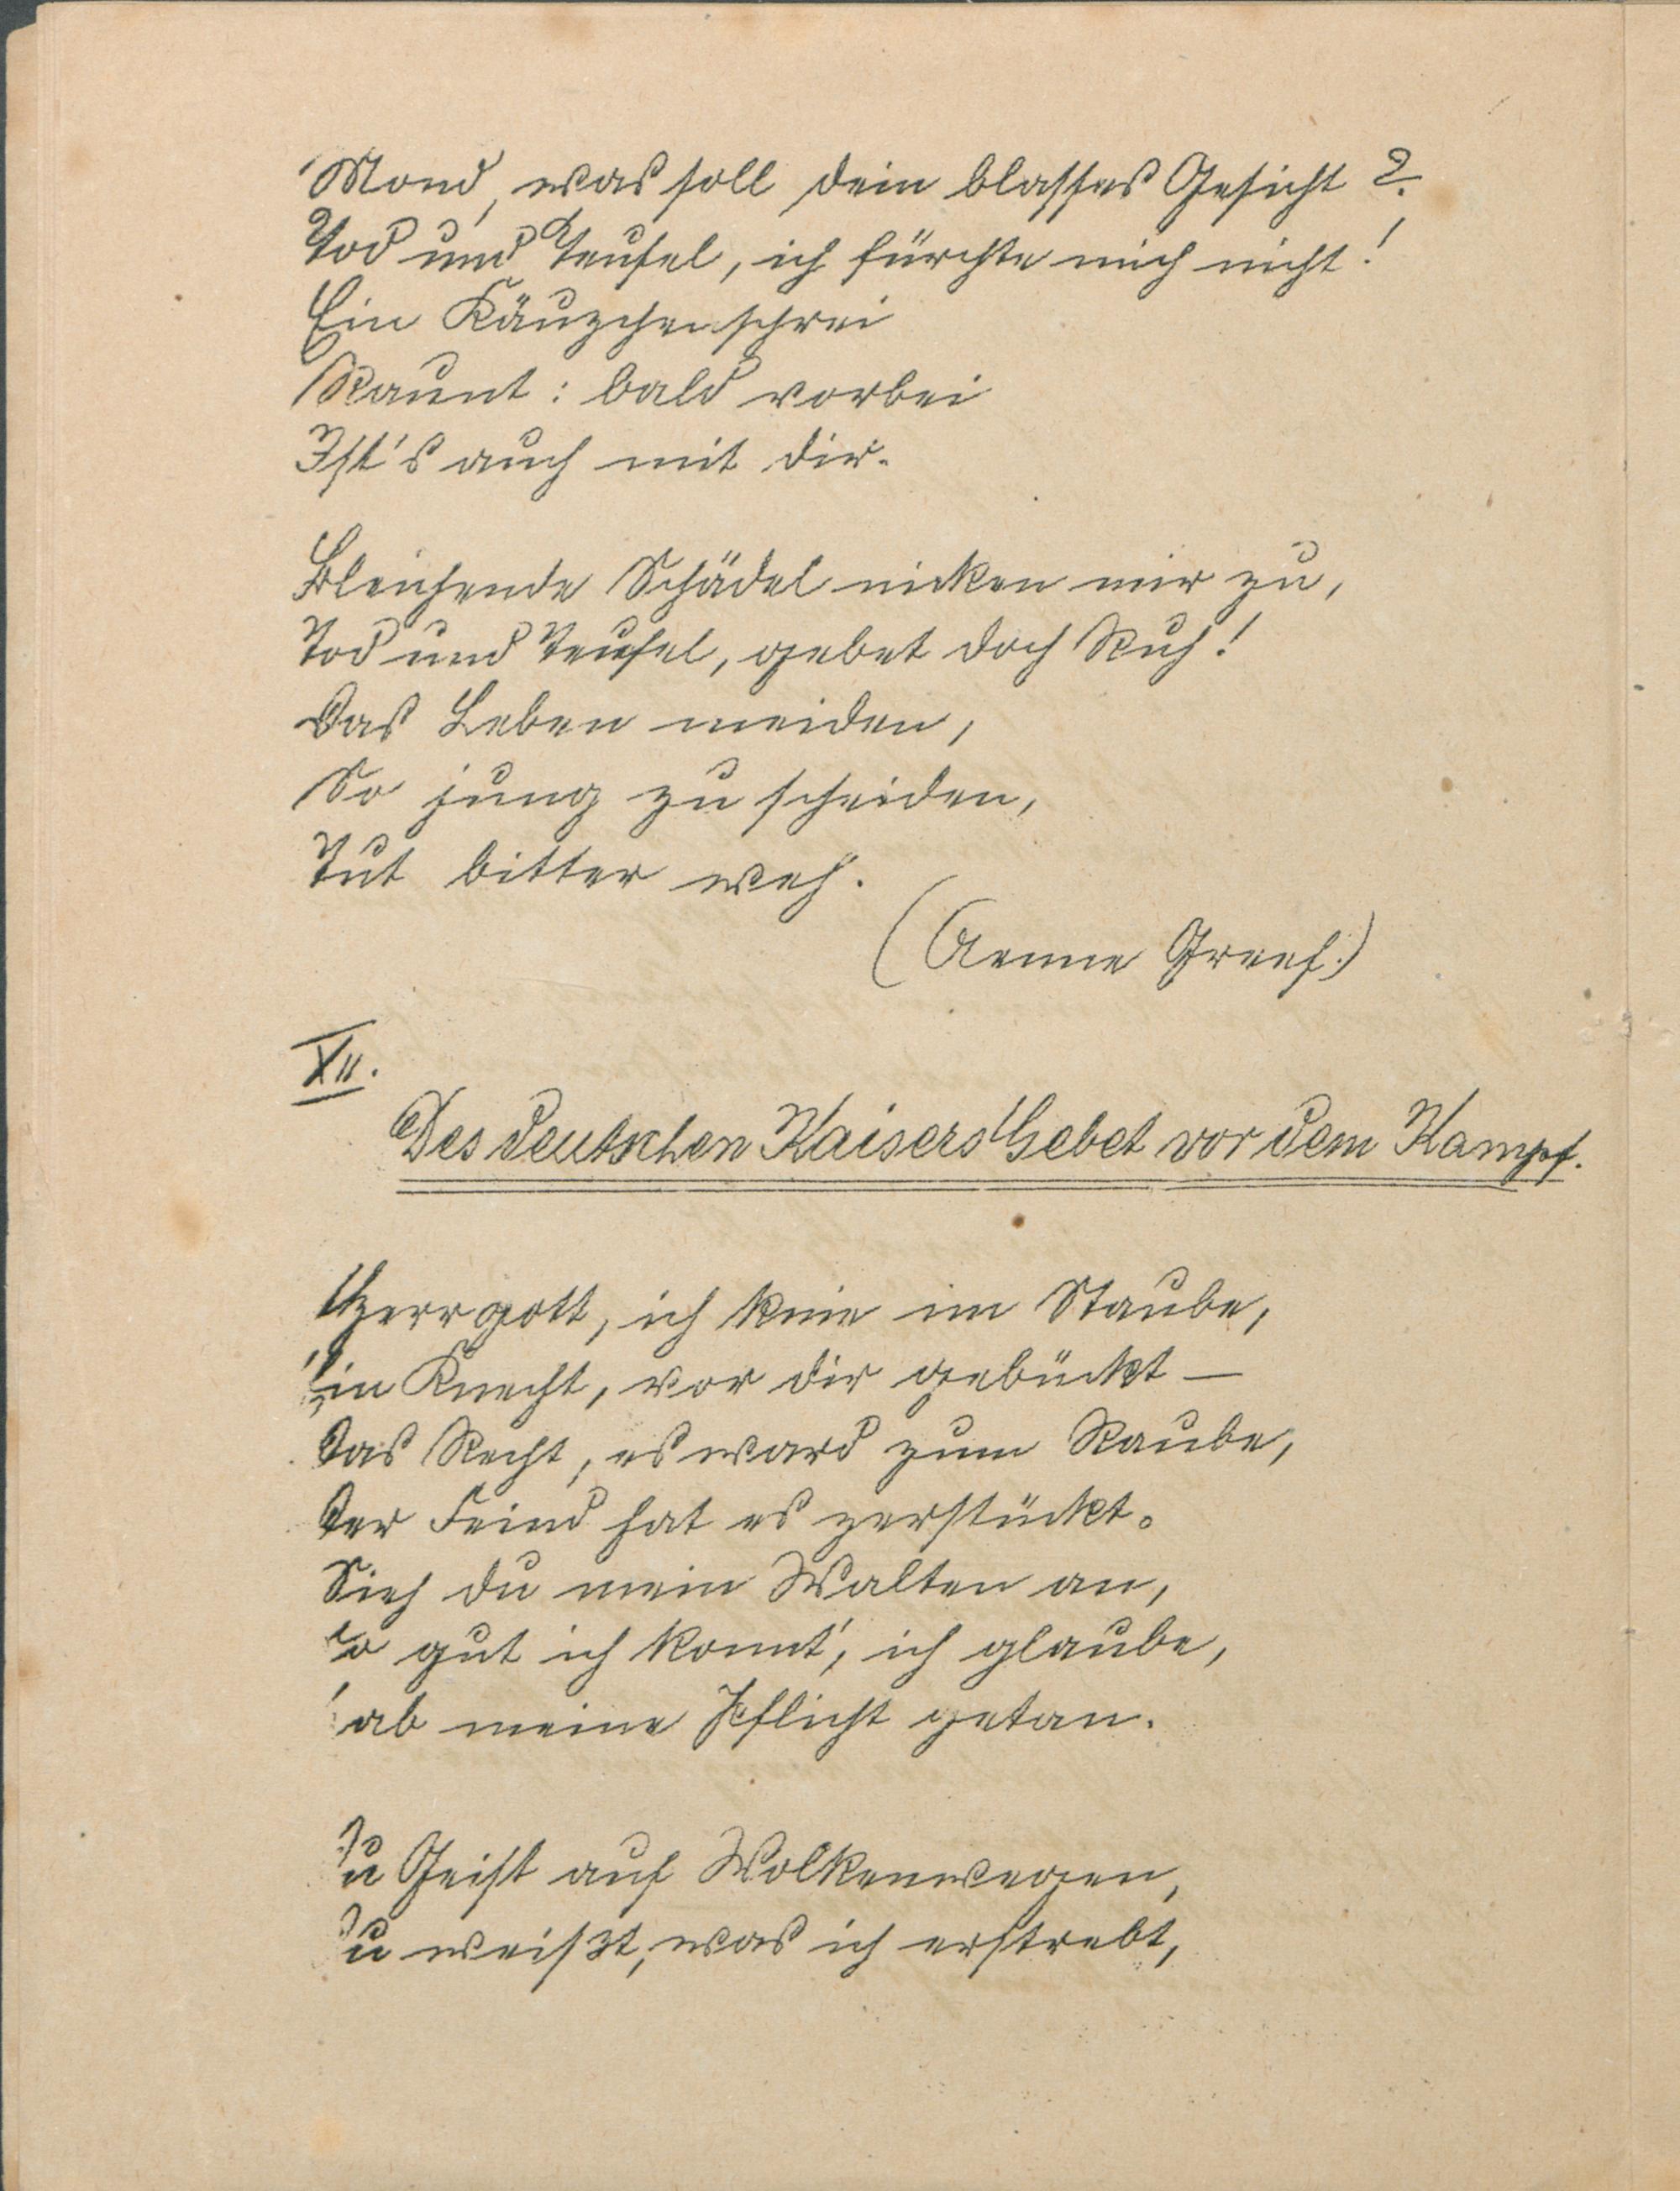 Mond, was soll dein blasses Gesicht?
Tod und Teufel, ich fürchte mich nicht!
Ein Käuzchenschrei
Raunt: bald vorbei
Ist's auch mit dir.
Bleichende Schädel nicken mir zu,
Tod und Teufel, gebet doch Ruh!
Das Leben meiden,
So jung zu scheiden,
Tut bitter weh.
(Aenne Greef.)
XII.
Des deutschen Kaisers Gebet vor dem Kampf.
Herrgott, ich knie im Staube,
Ein Knecht, vor dir gebückt –
Das Recht, es ward zum Raube,
Der Feind hat es zerstückt.
Sieh du mein Walten an,
So gut ich konnt', ich glaube,
Hab meine Pflicht getan.
Du Geist auf Wolkenwegen,
Du weißt, was ich erstrebt,